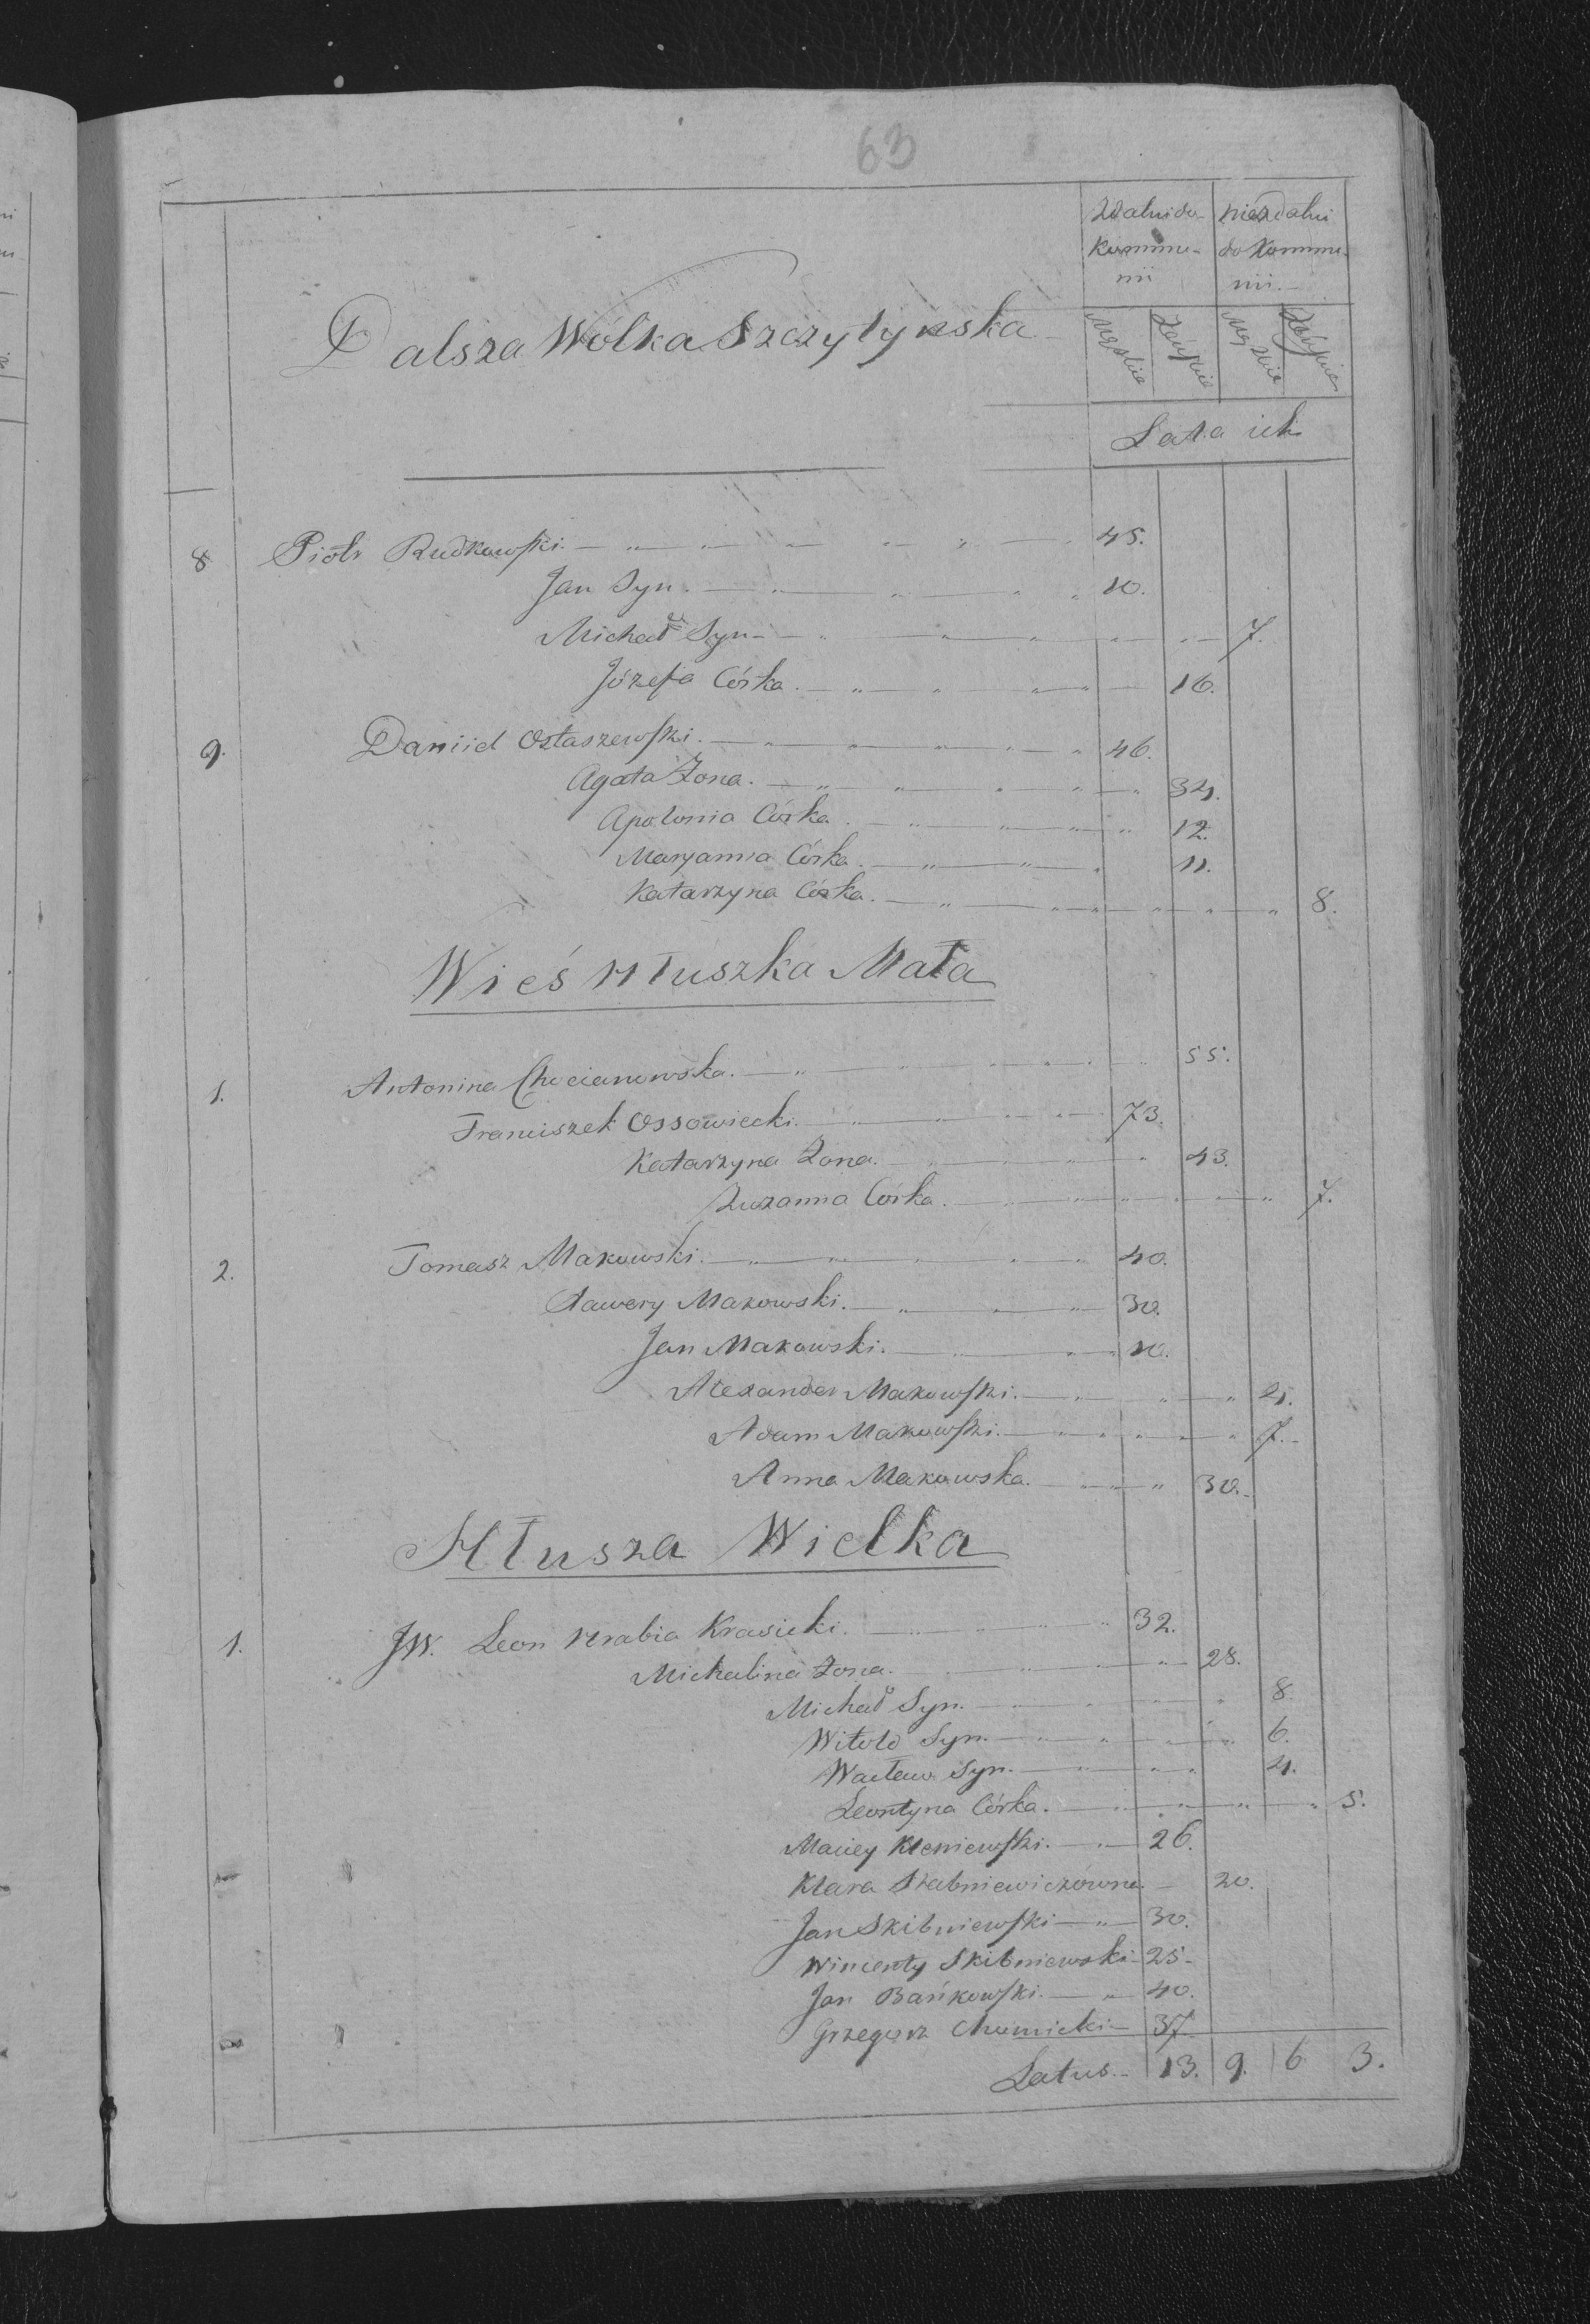 63
Zdalni do niezdalni
Kommu- do Kommu-
nii nii.
Dalsza Wólka Szczytynska
Męzkie Żeńskie Męzkie Żeńskie
Lata ich
8 Piotr Rudkowski. 45.
Jan Syn. 10.
Michał Syn 7.
Józefa Córka. 16.
9. Daniiel Ostaszewski. 46.
Agata Żona. 34.
Apolonia Córka. 12.
Maryanna Córka. 11.
Katarzyna Córka. 8.
Wieś Hłuszka Mała
1. Antonina Chocianowska. 55.
Franciszek Ossowiecki. 73.
Katarzyna Żona. 43.
Zuzanna Córka. 7.
2. Tomasz Makowski. 40.
Xawery Makowski. 30.
Jan Makowski. 10.
Alexander Makowski. 4.
Adam Makowski. 7.
Anna Makowska. 30.
Hłusza Wielka
1. JW. Leon Hrabia Krasicki. 32.
Michalina Żona. 28.
Michał Syn. 8.
Witold Syn. 6.
Wacław Syn. 4.
Leontyna Córka. 5.
Maciey Kleniewski. 26.
Klara Stabniewiczówna 20.
Jan Skibniewski 30.
Wincenty Skibniewski 25
Jan Bańkowski. 40.
Grzegorz Chumicki 37
Latus 13. 9. 6 3.